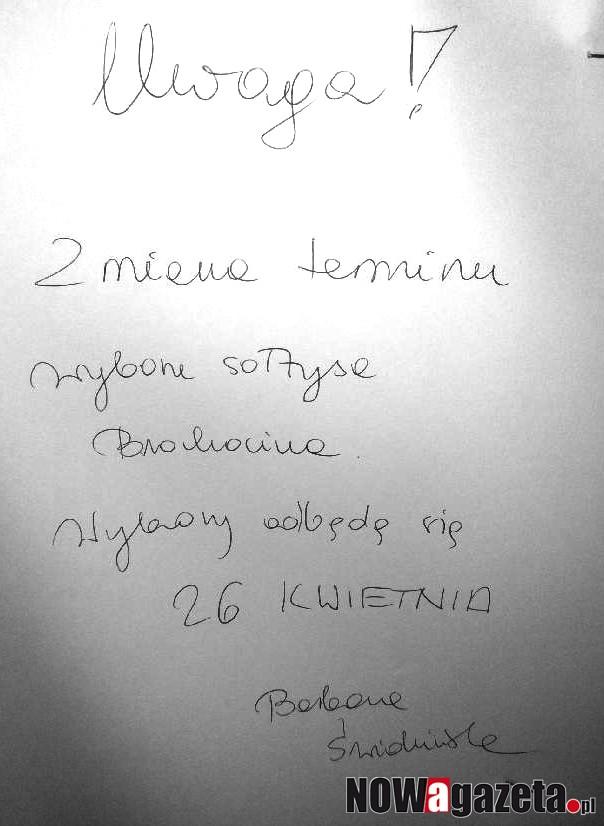 Uwaga!
Zmiana terminu
wyboru sołtysa
Brochocina.
Wybory odbędą się
26 KWIETNIA
Barbara
Świdnicka
NOWagazeta.pl